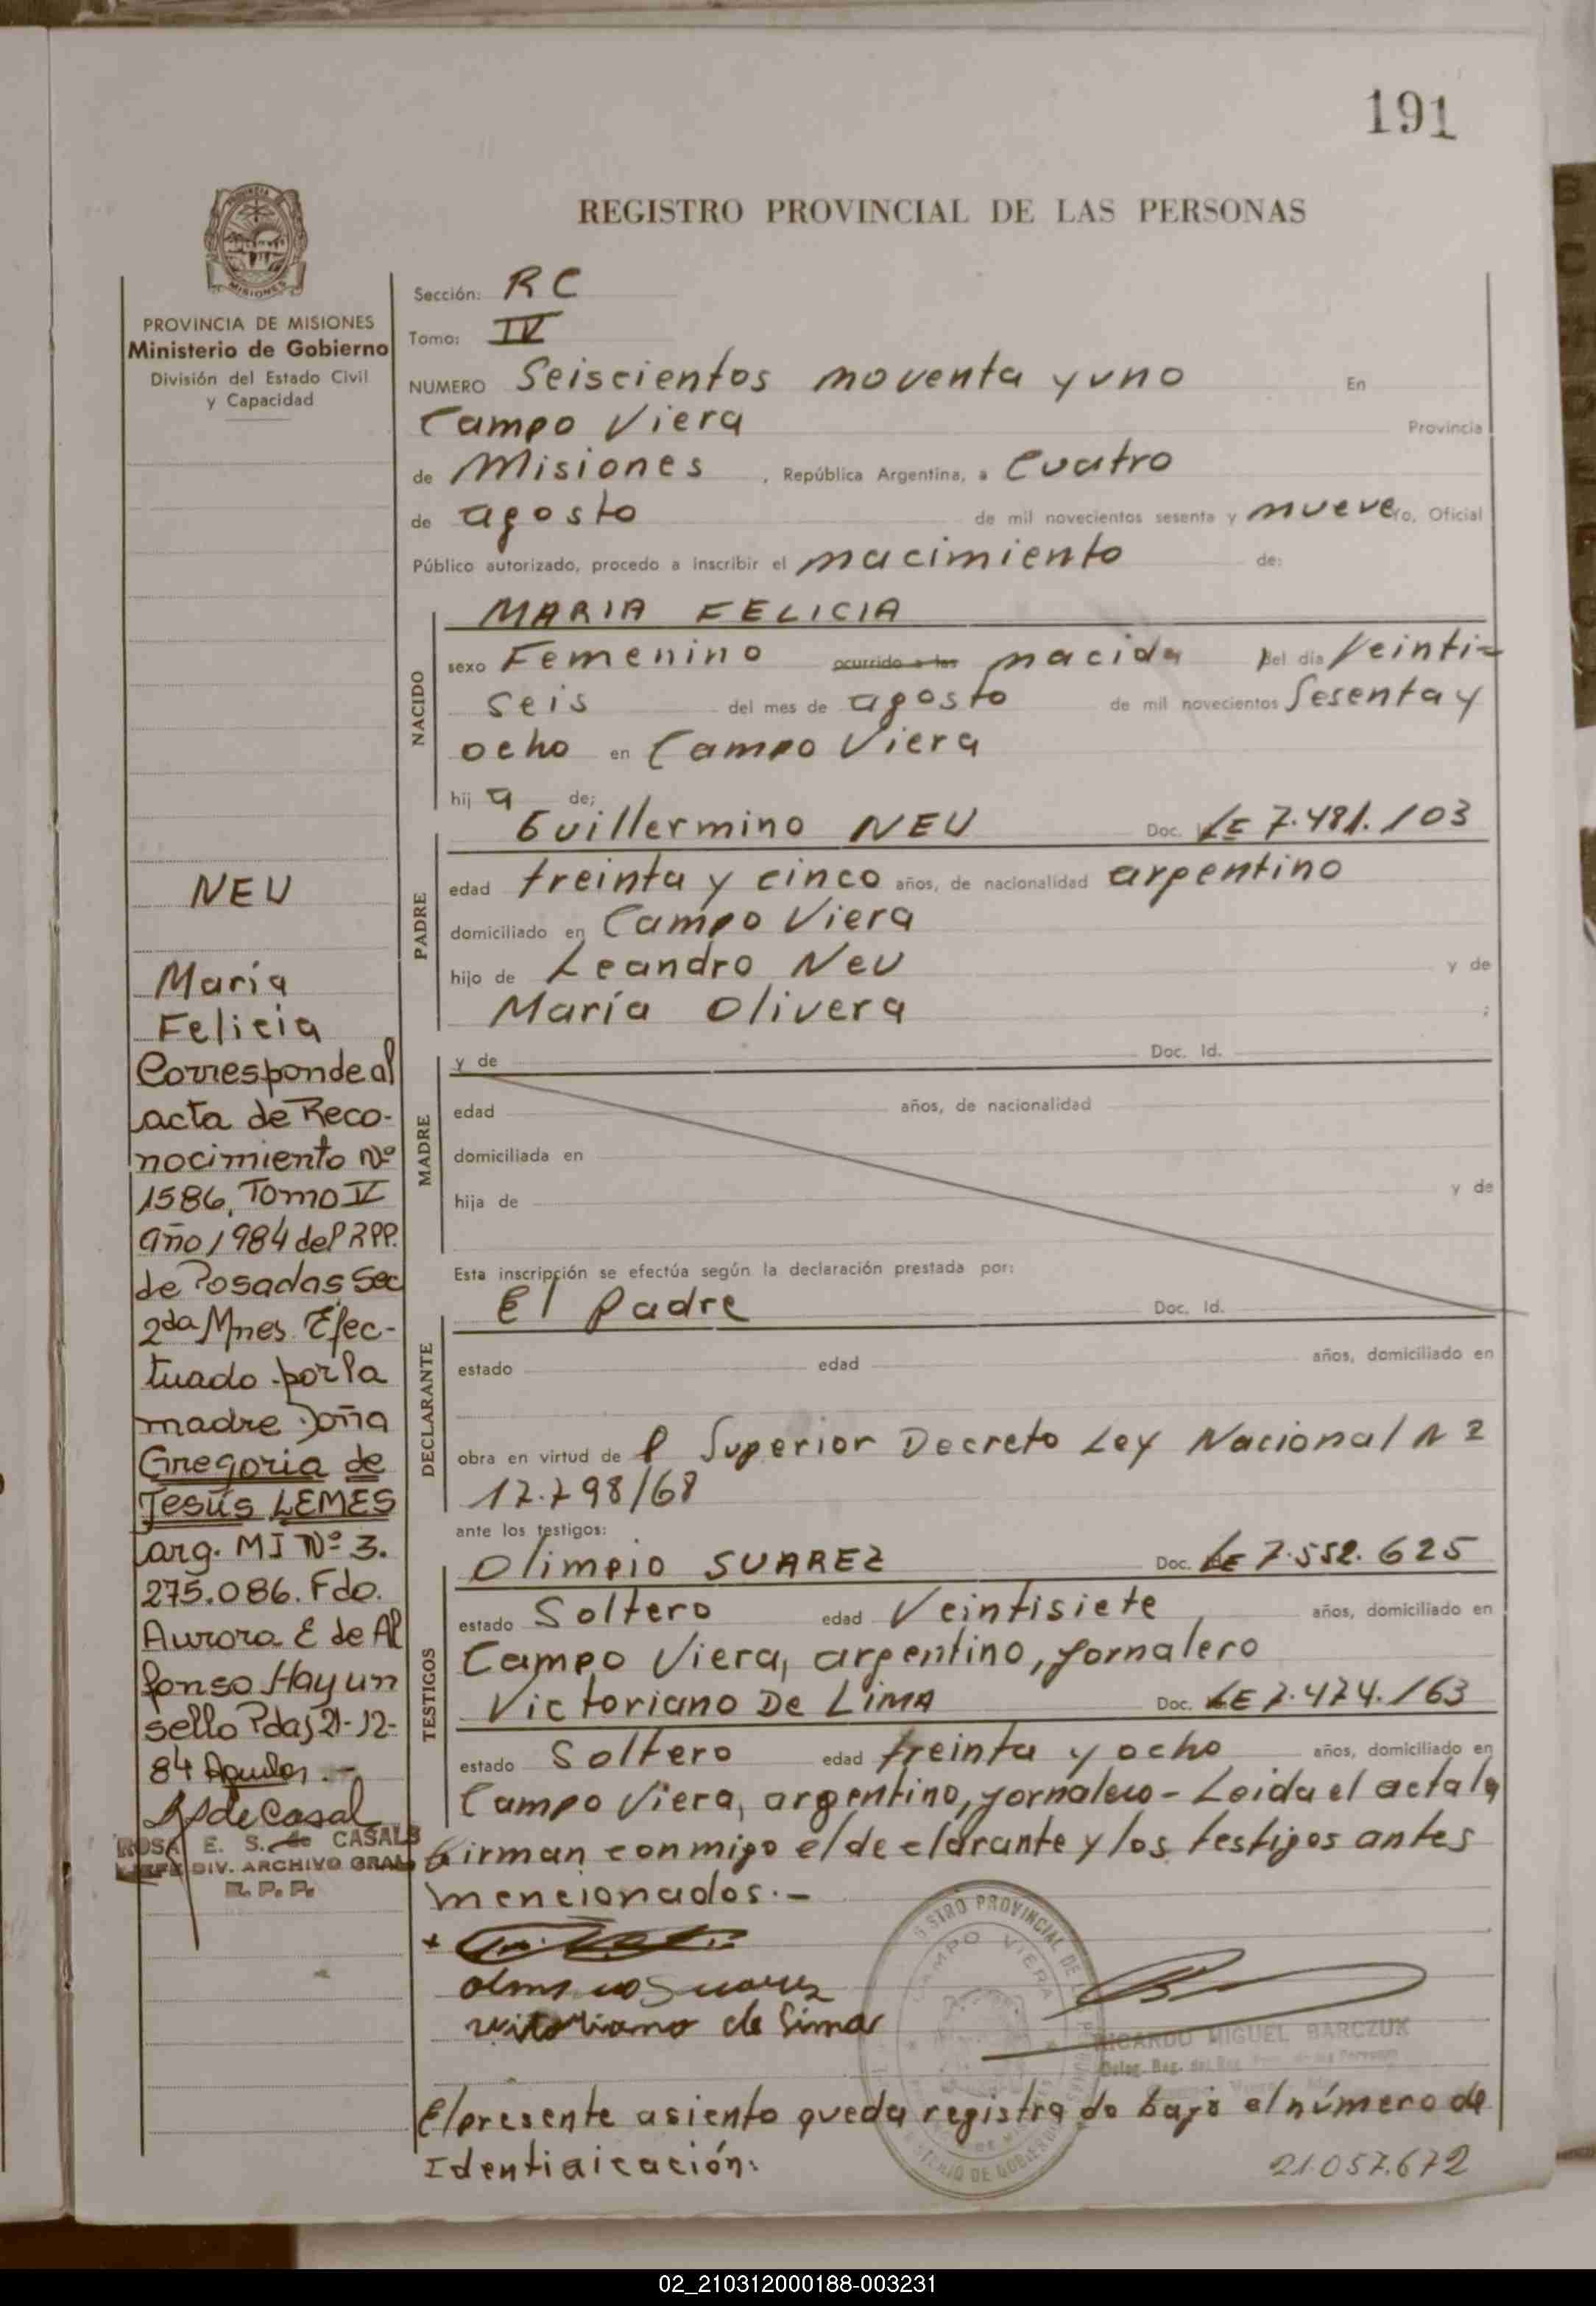 191
REGISTRO PROVINCIAL DE LAS PERSONAS
PROVINCIA DE MISIONES
Ministerio de Gobierno
División del Estado Civil
y Capacidad
Sección: RC
Tomo: IV
NUMERO Seiscientos noventa y uno En
Campo Viera Provincia
de Misiones, República Argentina, a Cuatro
de agosto de mil novecientos sesenta y nueve ro, Oficial
Público autorizado, procedo a inscribir el nacimiento de:
NACIDO
MARIA FELICIA
sexo Femenino ocurrido a las nacida del día Veinti-
seis del mes de agosto de mil novecientos Sesenta y
ocho en Campo Viera
hij a de;
PADRE
Guillermino NEU Doc. LE 7.481.103
edad treinta y cinco años, de nacionalidad argentino
domiciliado en Campo Viera
hijo de Leandro Neu y de
María Olivera ;
MADRE
y de Doc. Id.
edad años, de nacionalidad
domiciliada en
hija de y de
Esta inscripción se efectúa según la declaración prestada por:
DECLARANTE
El Padre Doc. Id.
estado edad años, domiciliado en
obra en virtud de l Superior Decreto Ley Nacional N 2
17.798/68
ante los testigos:
TESTIGOS
Olimpio SUAREZ Doc. LE 7.552.625
estado Soltero edad Veintisiete años, domiciliado en
Campo Viera, argentino, jornalero
Victoriano De LIMA Doc. LE 7.474.163
estado Soltero edad treinta y ocho años, domiciliado en
Campo Viera, argentino, jornalero - Leida el acta la
firman conmigo el declarante y los testigos antes
mencionados.-
NEU
María
Felicia
Corresponde al
acta de Reco-
nocimiento Nº
1586, Tomo IV
año 1984 del RPP.
de Posadas Sec
2da Mnes. Efec-
tuado por la
madre Doña
Gregoria de
Jesús LEMES
arg. MI Nº 3.
275.086. Fdo.
Aurora E de Al
fonso Hay un
sello Pdas 21-12-
84
ROSA E. S. de CASALS
JEFE DIV. ARCHIVO GRAL
R. P. P.
Olimpio Suarez
vitoriano de Lima
RICARDO MIGUEL BARCZUK
CAMPO VIERA
El presente asiento queda registrado bajo el número de
Identiaicación: 21.057.672
02_210312000188-003231